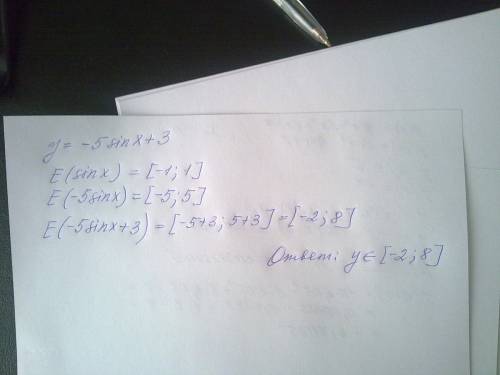 y = -5sinx+3
E(sinx) = [-1; 1]
E(-5sinx)=[-5; 5]
E(-5sinx+3)=[-5+3; 5+3]=[-2; 8]
Ответ: y∈[-2; 8]